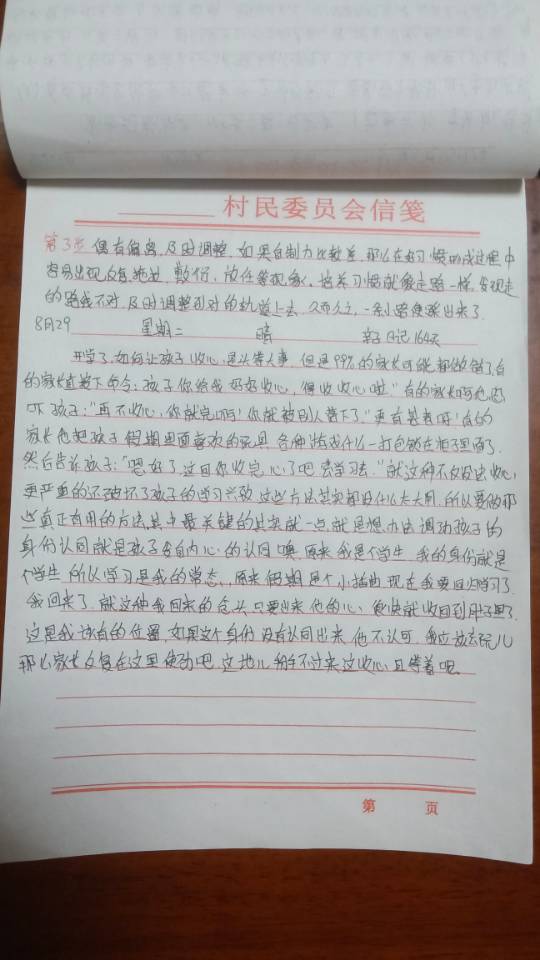 村民委员会信笺
第3步 偶有偏离,及时调整,如果自制力比较差,那么在好习惯的成过程中
容易出现反复,拖拉,敷衍,放任等现象,培养习惯就像走路一样,发现走
的路线不对,及时调整到对的轨道上去,久而久之,一条小路便踩出来了.
8月29 星期二 晴 亲子日记164天
开学了,如何让孩子收心,是头等大事,但是99%的家长可能都做错了,有
的家长直接下命令:孩子你给我好好收心,得收收心啦."有的家长呢
吓孩子:"再不收心,你就完了啊!你就被别人落下了."更有甚者呀!有的
家长他把孩子假期里面喜欢的玩具,各种游戏什么一打包锁在柜子里面了.
然后告诉孩子:"嗯好了,这回你收完心了吧,去学习去."就这种不仅没法收心,
更严重的还破坏了孩子的学习兴致,这些方法其实都没什么大用,所以要做那
些真正有用的方法,其中最关键的其实就一点就是想办法调动孩子的
身份认同,就是孩子发自内心的认同噢,原来我是个学生,我的身份就是
个学生,所以学习是我的常态,原来假期是个小插曲,现在我要回归学习了,
我回来了,就这种我回来的念头,只要出来,他的心,很快就收回到肚子里了.
这是我该有的位置,如果这个身份没有认同出来,他不认可,我应该去玩儿
那么家长反复在这里使劲吧,这地儿掰不过来,这收心,且等着呢.
第 页